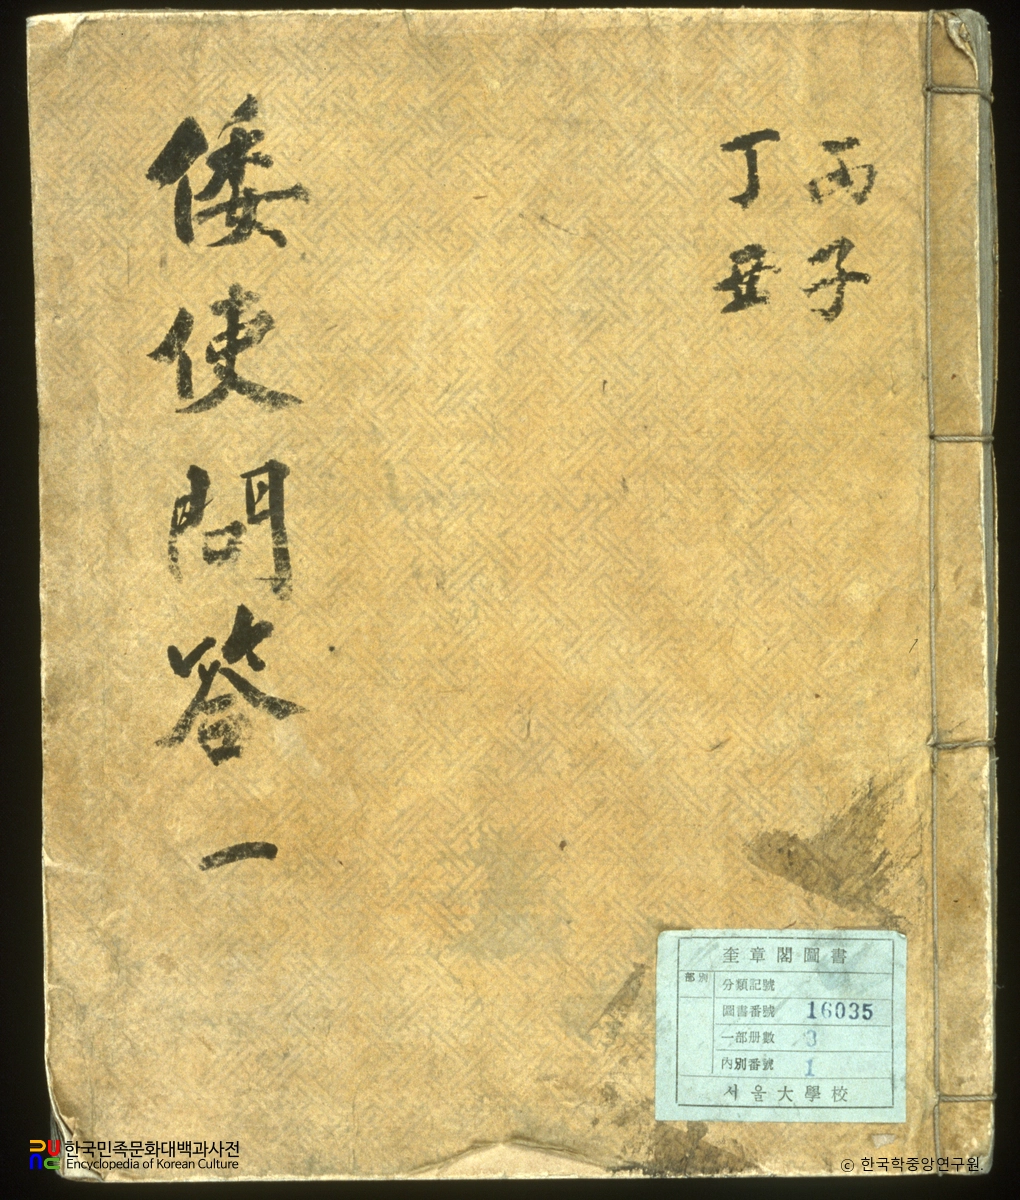 丙子
丁丑
倭使問答 一
奎章閣圖書
部別
分類記號
圖書番號 16035
一部册數 3
內別番號 1
서울大學校
한국민족문화대백과사전
Encyclopedia of Korean Culture
© 한국학중앙연구원.